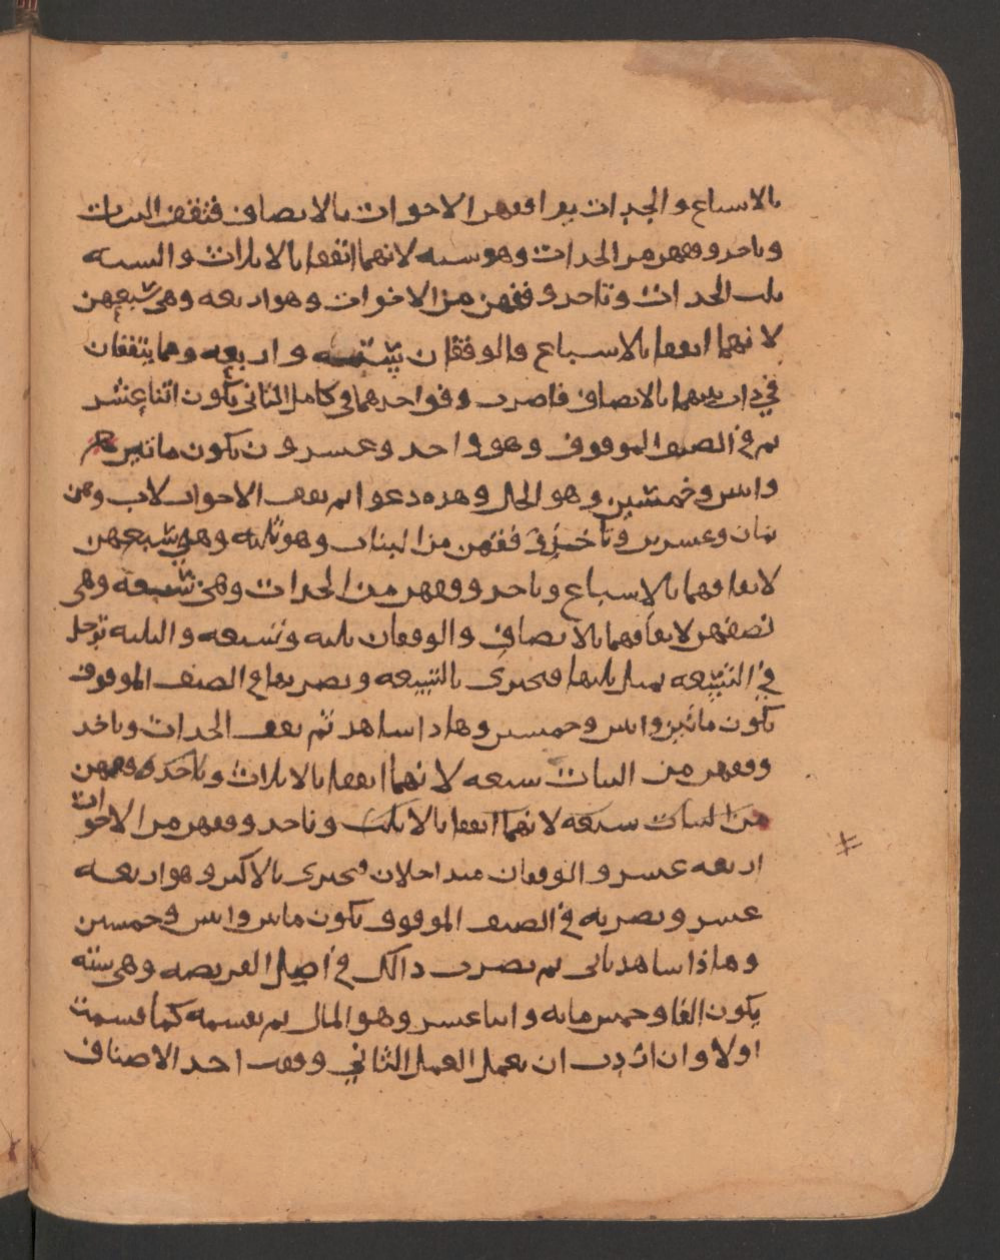 بالاسباع والجدات يوافقهن الاخوات بالانصاف فتقف البنات
وتاخذ وفقهن من الجدات وهو سته لانهما اتفقا بالاثلاث والسته
ثلث الجدات وتاخذ وفقهن من الاخوات وهو اربعه وهي سبعهن
لانهما اتفقا بالاسباع فالوفقان سته واربعه وهما يتفقان
في ذات بينهما بالانصاف فاضرب وفق احدهما في كامل الثاني تكون اثنا عشر
ثم في الصنف الموقوف وهو واحد وعسرون تكون ماتين
واثنين وخمسين وهو الحال وهذه دعوا ثم تقف الاخوات لاب وهن
ثمان وعسرين وتاخذ وفقهن من البنات وهو ثلثه وهي سبعهن
لاتفاقهما بالاسباع وتاخذ وفقهن من الجدات وهي تسعه وهي
نصفهن لاتفاقهما بالانصاف والوفقان ثلثه وتسعه والثلثه تدخل
في التسعه بمثل ثلثها فتجتزى بالتسعه وتضربها في الصنف الموقوف
تكون مائتين واثنين وخمسين وهاذا ساهد ثم تقف الجدات وتاخذ
وفقهن من البنات سبعه لانهما اتفقا بالاثلاث وتاخذ وفقهن
من البنات سبعه لانهما اتفقا بالاثلث وتاخذ وفقهن من الاخوات
اربعه عسر والوفقان متداخلان فتجتزى بالاكبر وهو اربعه
عسر وتضربه في الصنف الموقوف تكون ماتين واثنين وخمسين
وهاذا ساهد ثاني ثم تضرب ذالك في اصل الفريضه وهي سته
يكون الفا وخمس مائه واثنا عسر وهو المال ثم تقسمه كما قسمت
اولا وان اردت ان تعمل العمل الثاني وقفت احد الاصناف